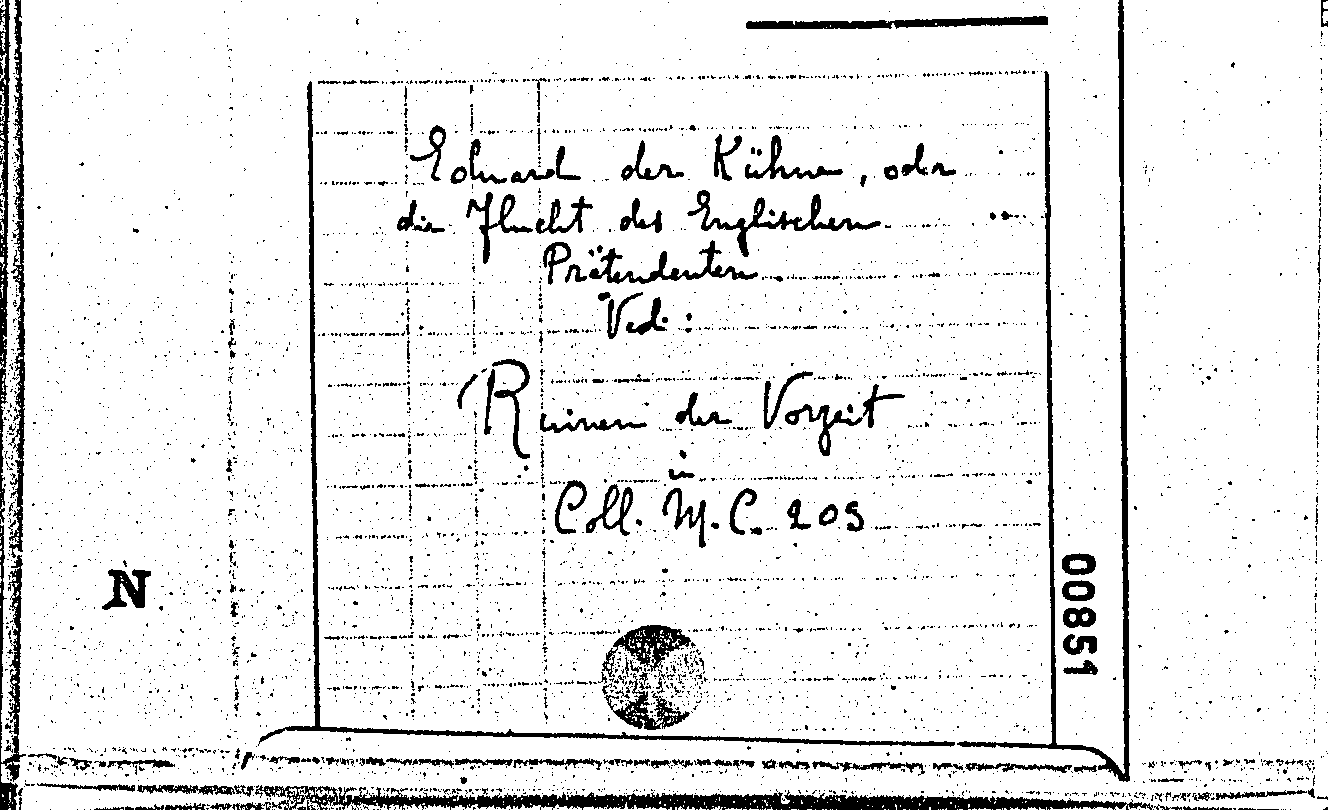 Eduard der Kühne, oder
die Flucht des Englischen
Prätendenten.
Vedi:
Ruinen der Vorzeit
in
Coll. M.C. 209
N
00851